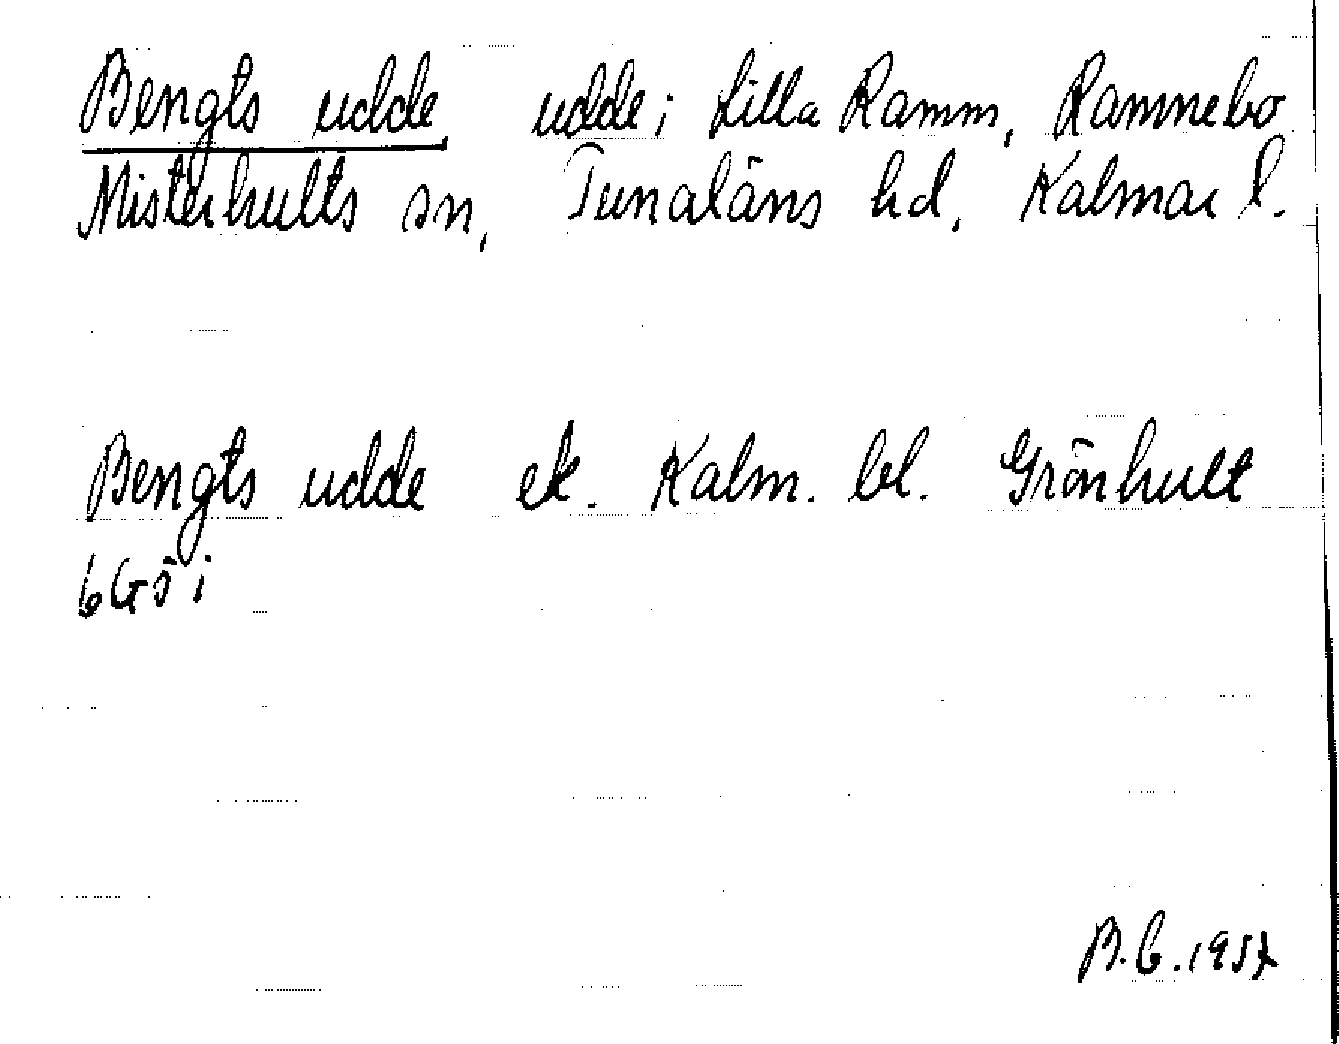 Bengts udde, udde i Lilla Ramm, Ramnebo
Misterhults sn, Tunaläns hd, Kalmar l.
Bengts udde ek. Kalm. bl. Grönhult
6G5i
B.C. 1957